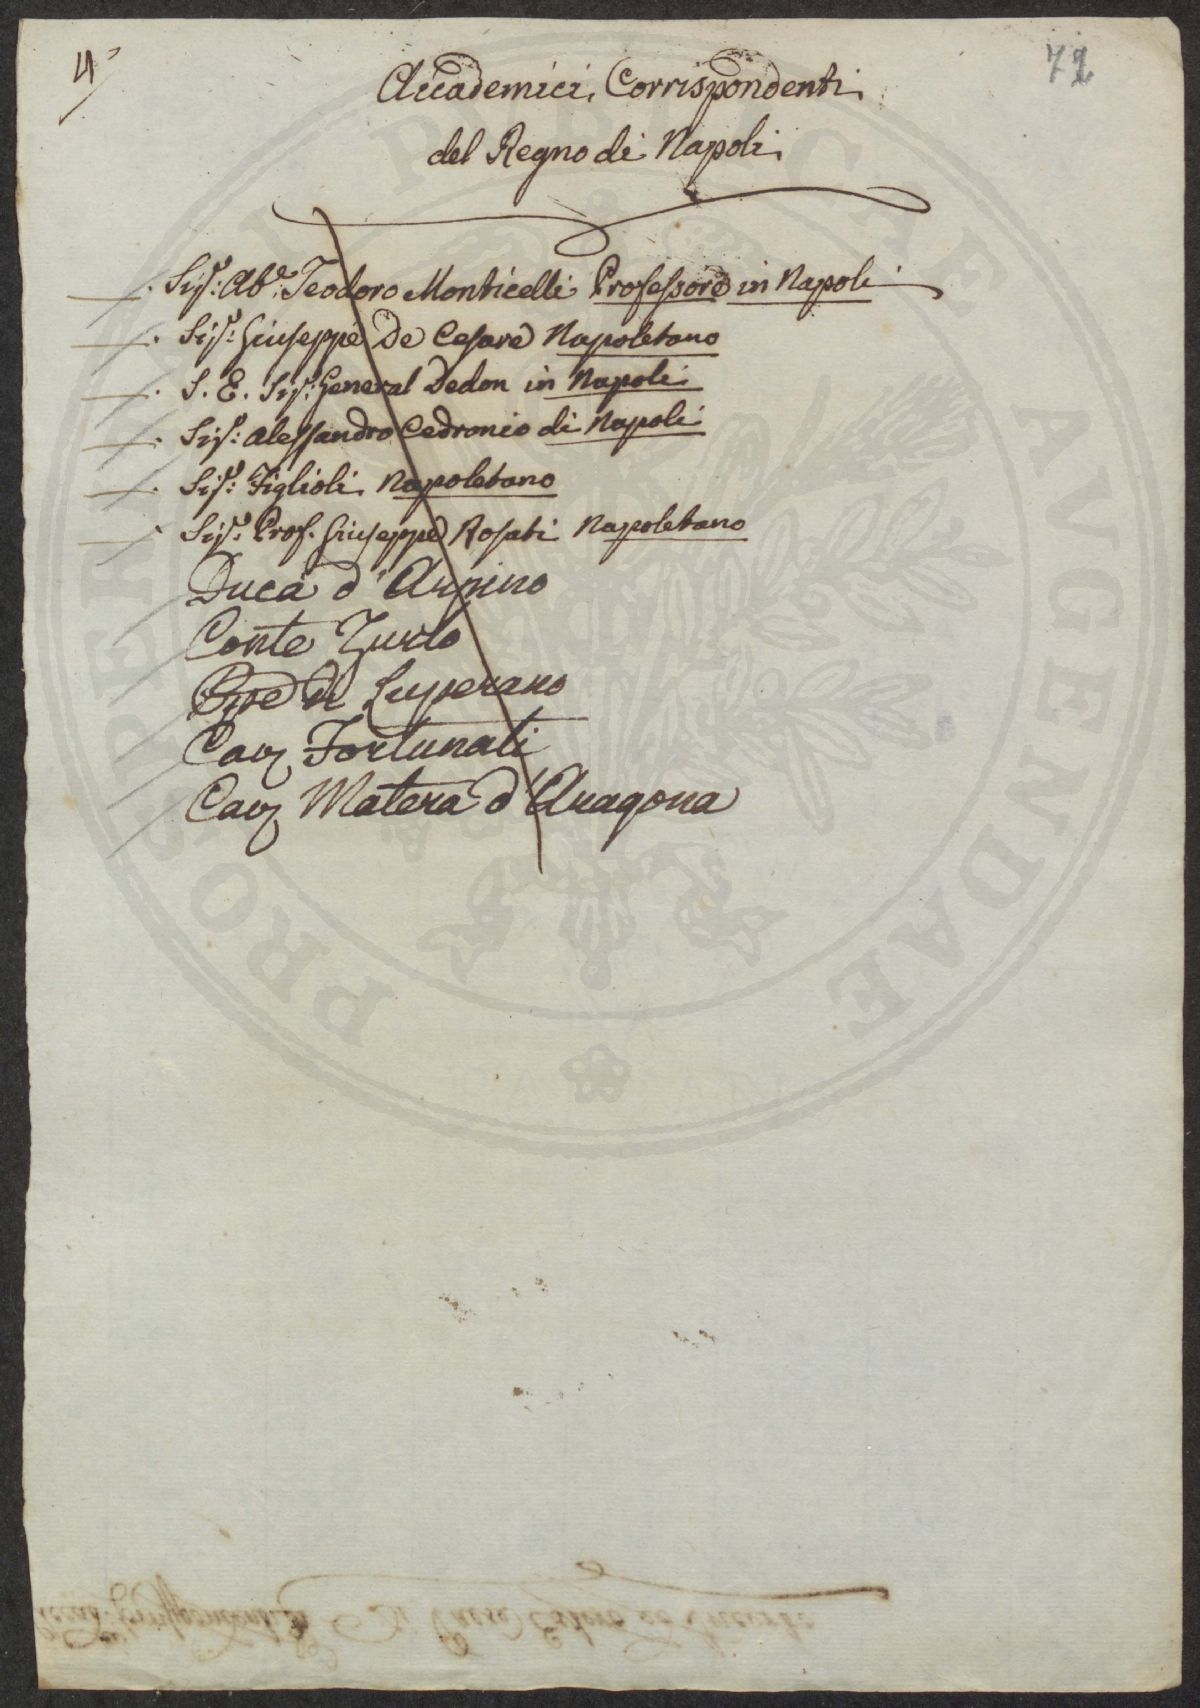 4
72
Accademici Corrispondenti
del Regno di Napoli
Sig.r: Ab.e Teodoro Monticelli Professore in Napoli
Sig.r: Giuseppe De Cesare Napoletano
S. E. Sig.r: General Dedon in Napoli
Sig.r: Alessandro Cedronio di Napoli
Sig.r: Figlioli Napoletano
Sig.r: Prof. Giuseppe Rosati Napoletano
Duca d'Arpino
Conte Zurlo
Ppe di Luperano
Cav Fortunati
Cav Matera d'Aragona
PROSPERITATI PUBLICAE AUGENDAE